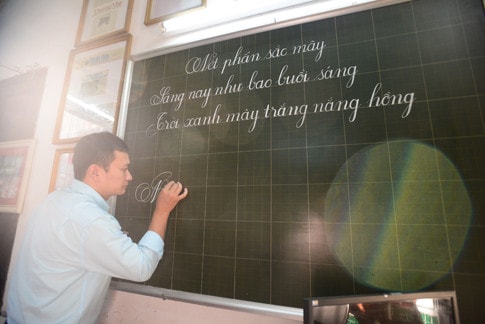 Nét phấn sắc mây
Sáng nay như bao buổi sáng
Trời xanh mây trắng nắng hồng